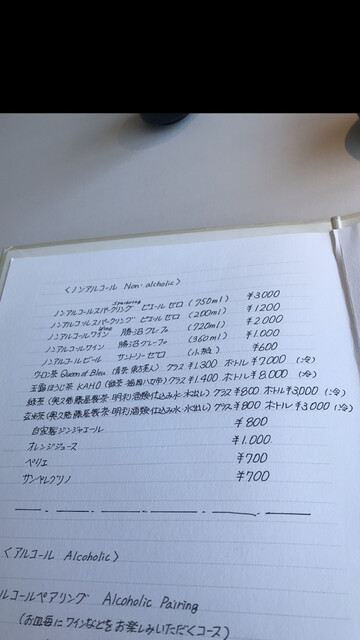 <ノンアルコール Non-alcholic>
ノンアルコールスパークリング Sparkring ピエール ゼロ (750ml) ¥3000
ノンアルコールスパークリング ピエール ゼロ (200ml) ¥1200
ノンアルコールワイン 勝沼グレフル (720ml) ¥2.000
ノンアルコールワイン 勝沼グレフル (360ml) ¥1.000
ノンアルコールビール サントリーゼロ (小瓶) ¥600
ウーロン茶 Queen of Bleu (青茶 東方美人) グラス ¥1.300 ボトル ¥7.000 (冷)
玉露ほうじ茶 KAHO (緑茶 福岡八女市) グラス ¥1.400 ボトル ¥8.000 (冷)
緑茶 (奥久慈 藤屋製茶・明利酒類仕込み水・水出し) グラス ¥800 ボトル ¥3,000 (冷)
玄米茶 (奥久慈 藤屋製茶・明利酒類仕込み水・水出し) グラス ¥800 ボトル ¥3.000 (冷)
自家製ジンジャエール ¥800
オレンジジュース ¥1.000
ペリエ ¥700
サンペレグリノ ¥700
<アルコール Alcoholic>
ルコールペアリング Alcoholic Pairing
(お皿毎にワインなどをお楽しみいただくコース)